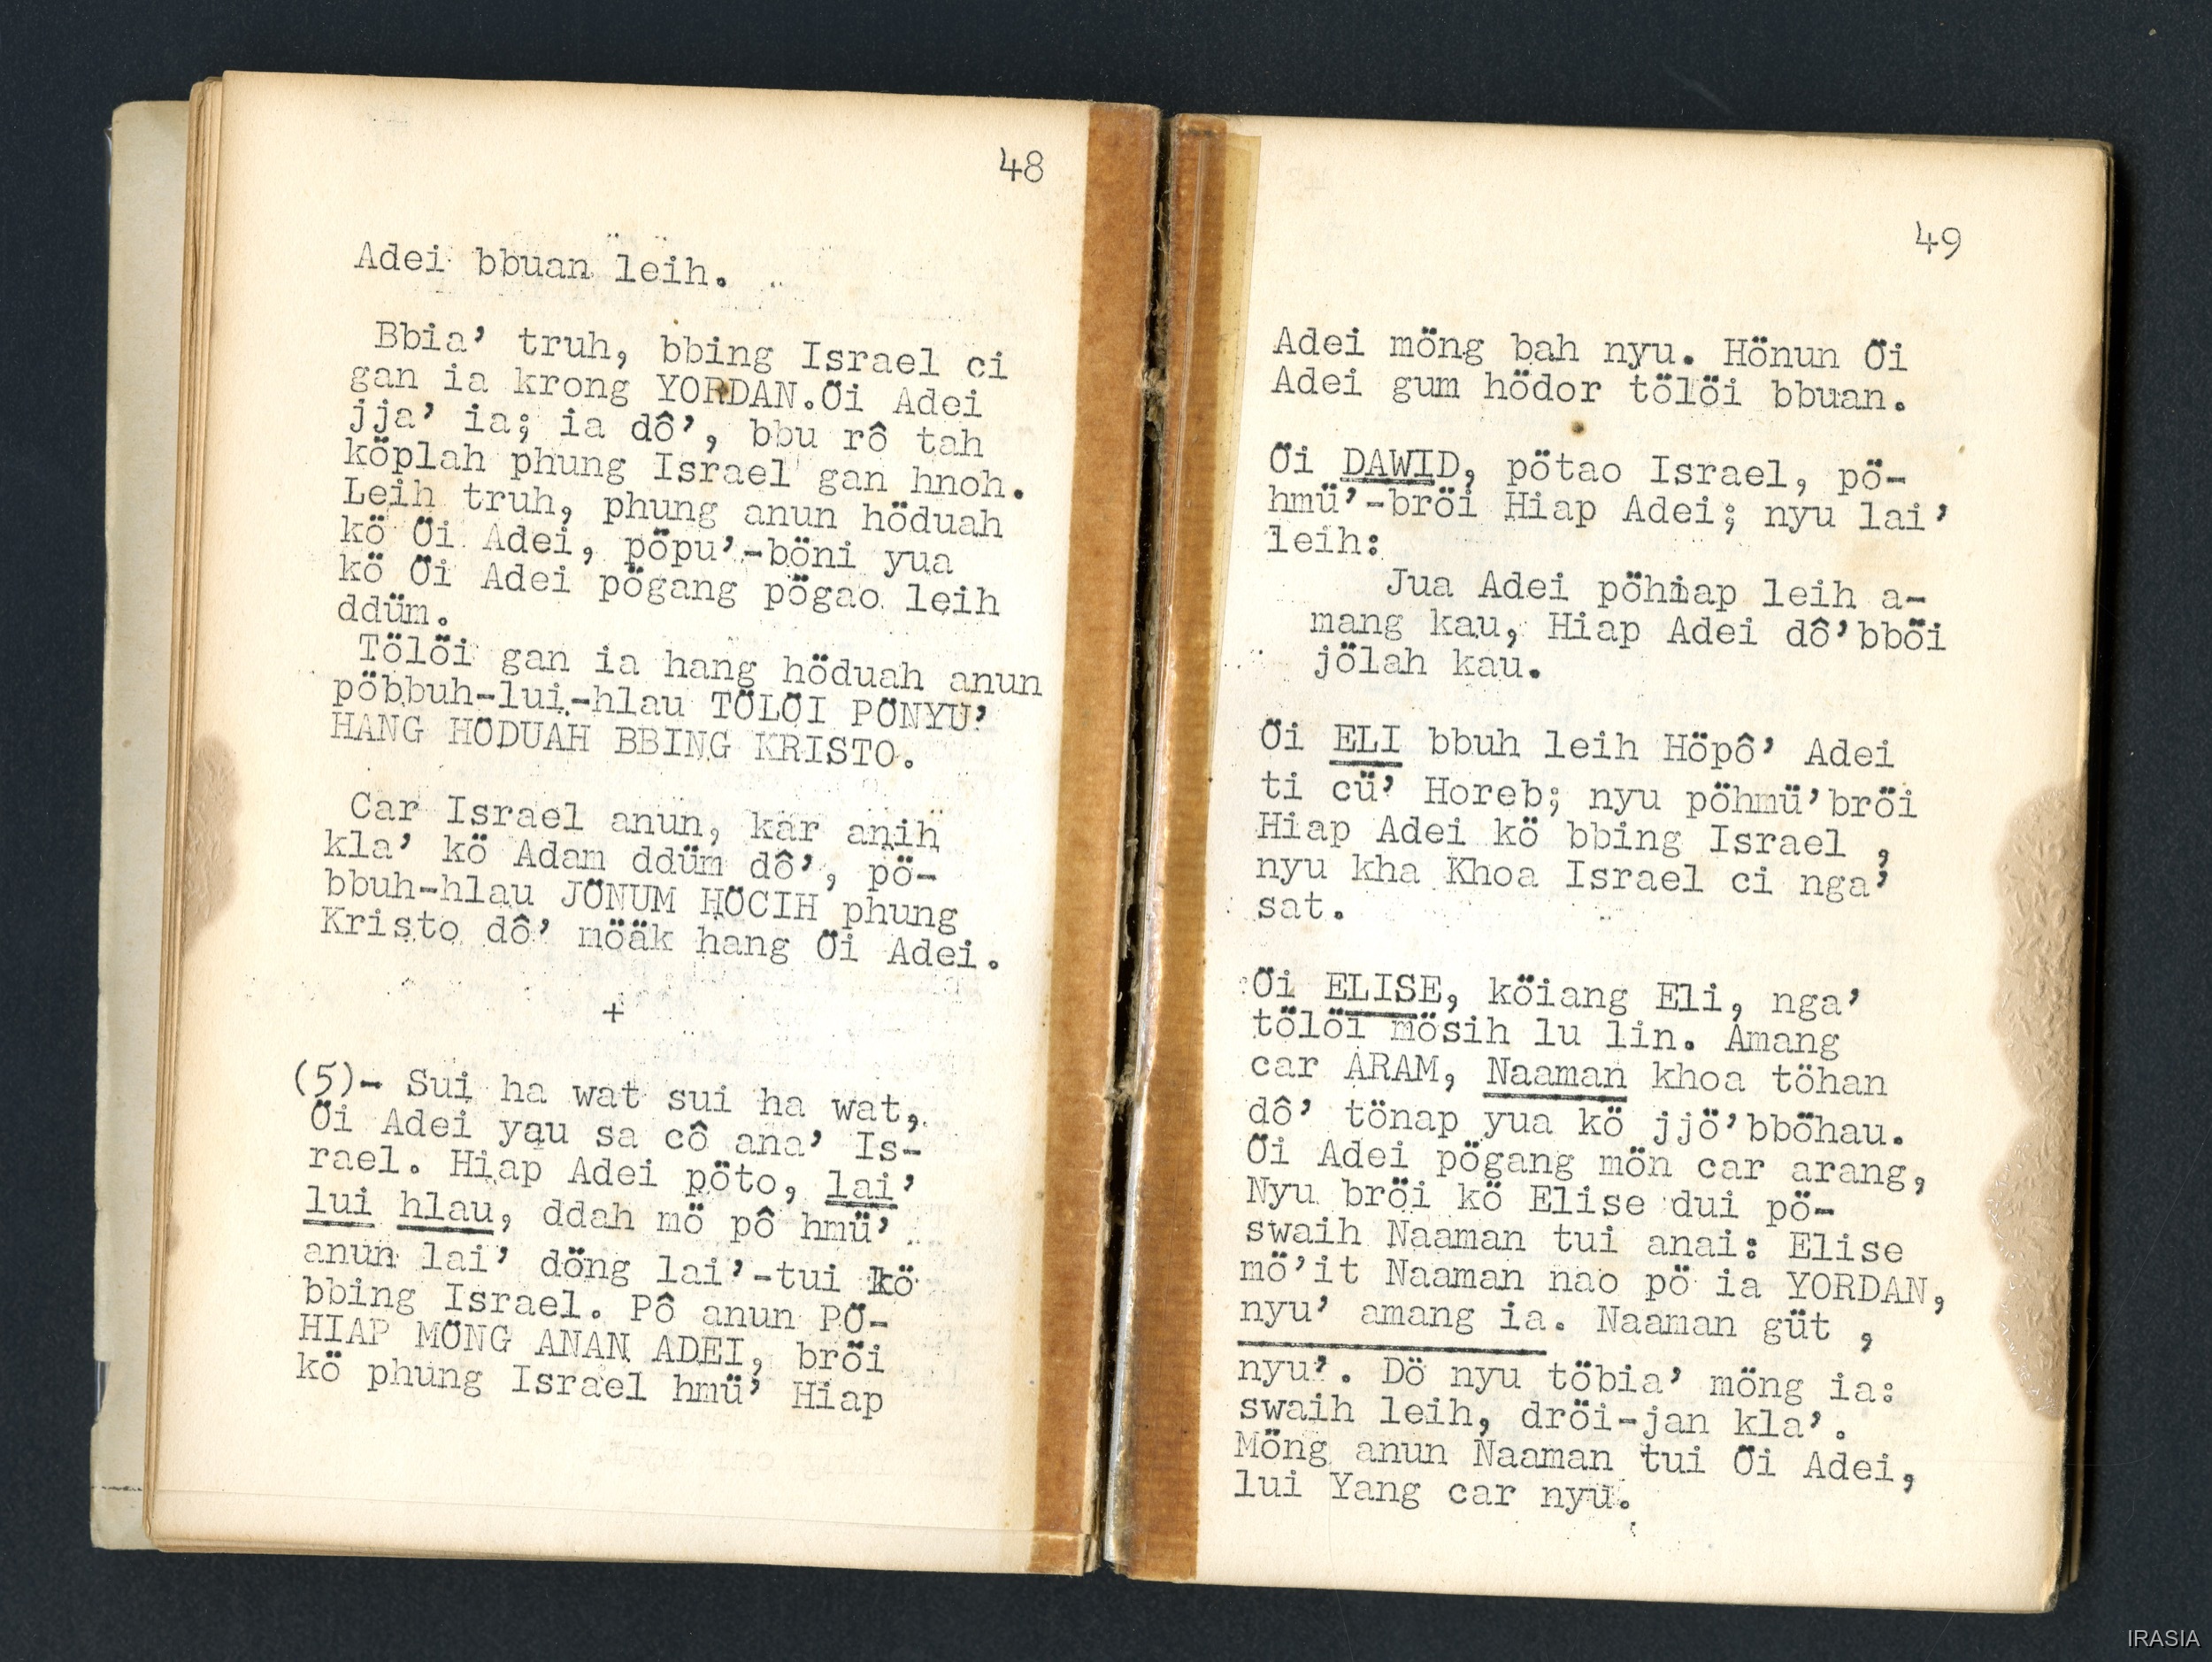 48
Adei bbuan leih.
Bbia’ truh, bbing Israel ci
gan ia krong YORDAN.Ӧi Adei
jja’ ia; ia dô’, bbu rô tah
köplah phung Israel gan hnoh.
Leih truh, phung anun höduah
kö Öi Adei, pöpu’-böni yua
kö Öi Adei pögang pögao leih
ddüm.
Tölöi gan ia hang höduah anun
pöbbuh-lui-hlau TÖLÖI PÖNYU’
HANG HÖDUAH BBING KRISTO.
Car Israel anun, kar anih
kla’ kö Adam ddüm dô’, pö-
bbuh-hlau JÖNUM HÖCIH phung
Kristo dô’ möäk hang Öi Adei.
+
(5)- Sui ha wat sui ha wat,
Öi Adei yau sa cô ana’ Is-
rael. Hiap Adei pöto, lai’
lui hlau, ddah mö pô hmü’
anun lai’ döng lai’-tui kö
bbing Israel. Pô anun PÖ-
HIAP MÖNG ANAN ADEI, bröi
kö phung Israel hmü’ Hiap
49
Adei möng bah nyu. Hönun Öi
Adei gum hödor tölöi bbuan.
Öi DAWID, pötao Israel, pö-
hmü’-bröi Hiap Adei; nyu lai’
leih:
Jua Adei pöhiap leih a-
mang kau, Hiap Adei dô’bböi
jölah kau.
Öi ELI bbuh leih Höpô’ Adei
ti cü’ Horeb; nyu pöhmü’bröi
Hiap Adei kö bbing Israel ,
nyu kha Khoa Israel ci nga’
sat.
Öi ELISE, köiang Eli, nga’
tölöi mösih lu lin. Amang
car ARAM, Naaman khoa töhan
dô’ tönap yua kö jjö’bböhau.
Öi Adei pögang mön car arang,
Nyu bröi kö Elise dui pö-
swaih Naaman tui anai: Elise
mö’it Naaman nao pö ia YORDAN,
nyu’ amang ia. Naaman güt ,
nyu’. Dö nyu töbia’ möng ia:
swaih leih, dröi-jan kla’.
Möng anun Naaman tui Öi Adei,
lui Yang car nyu.
IRASIA